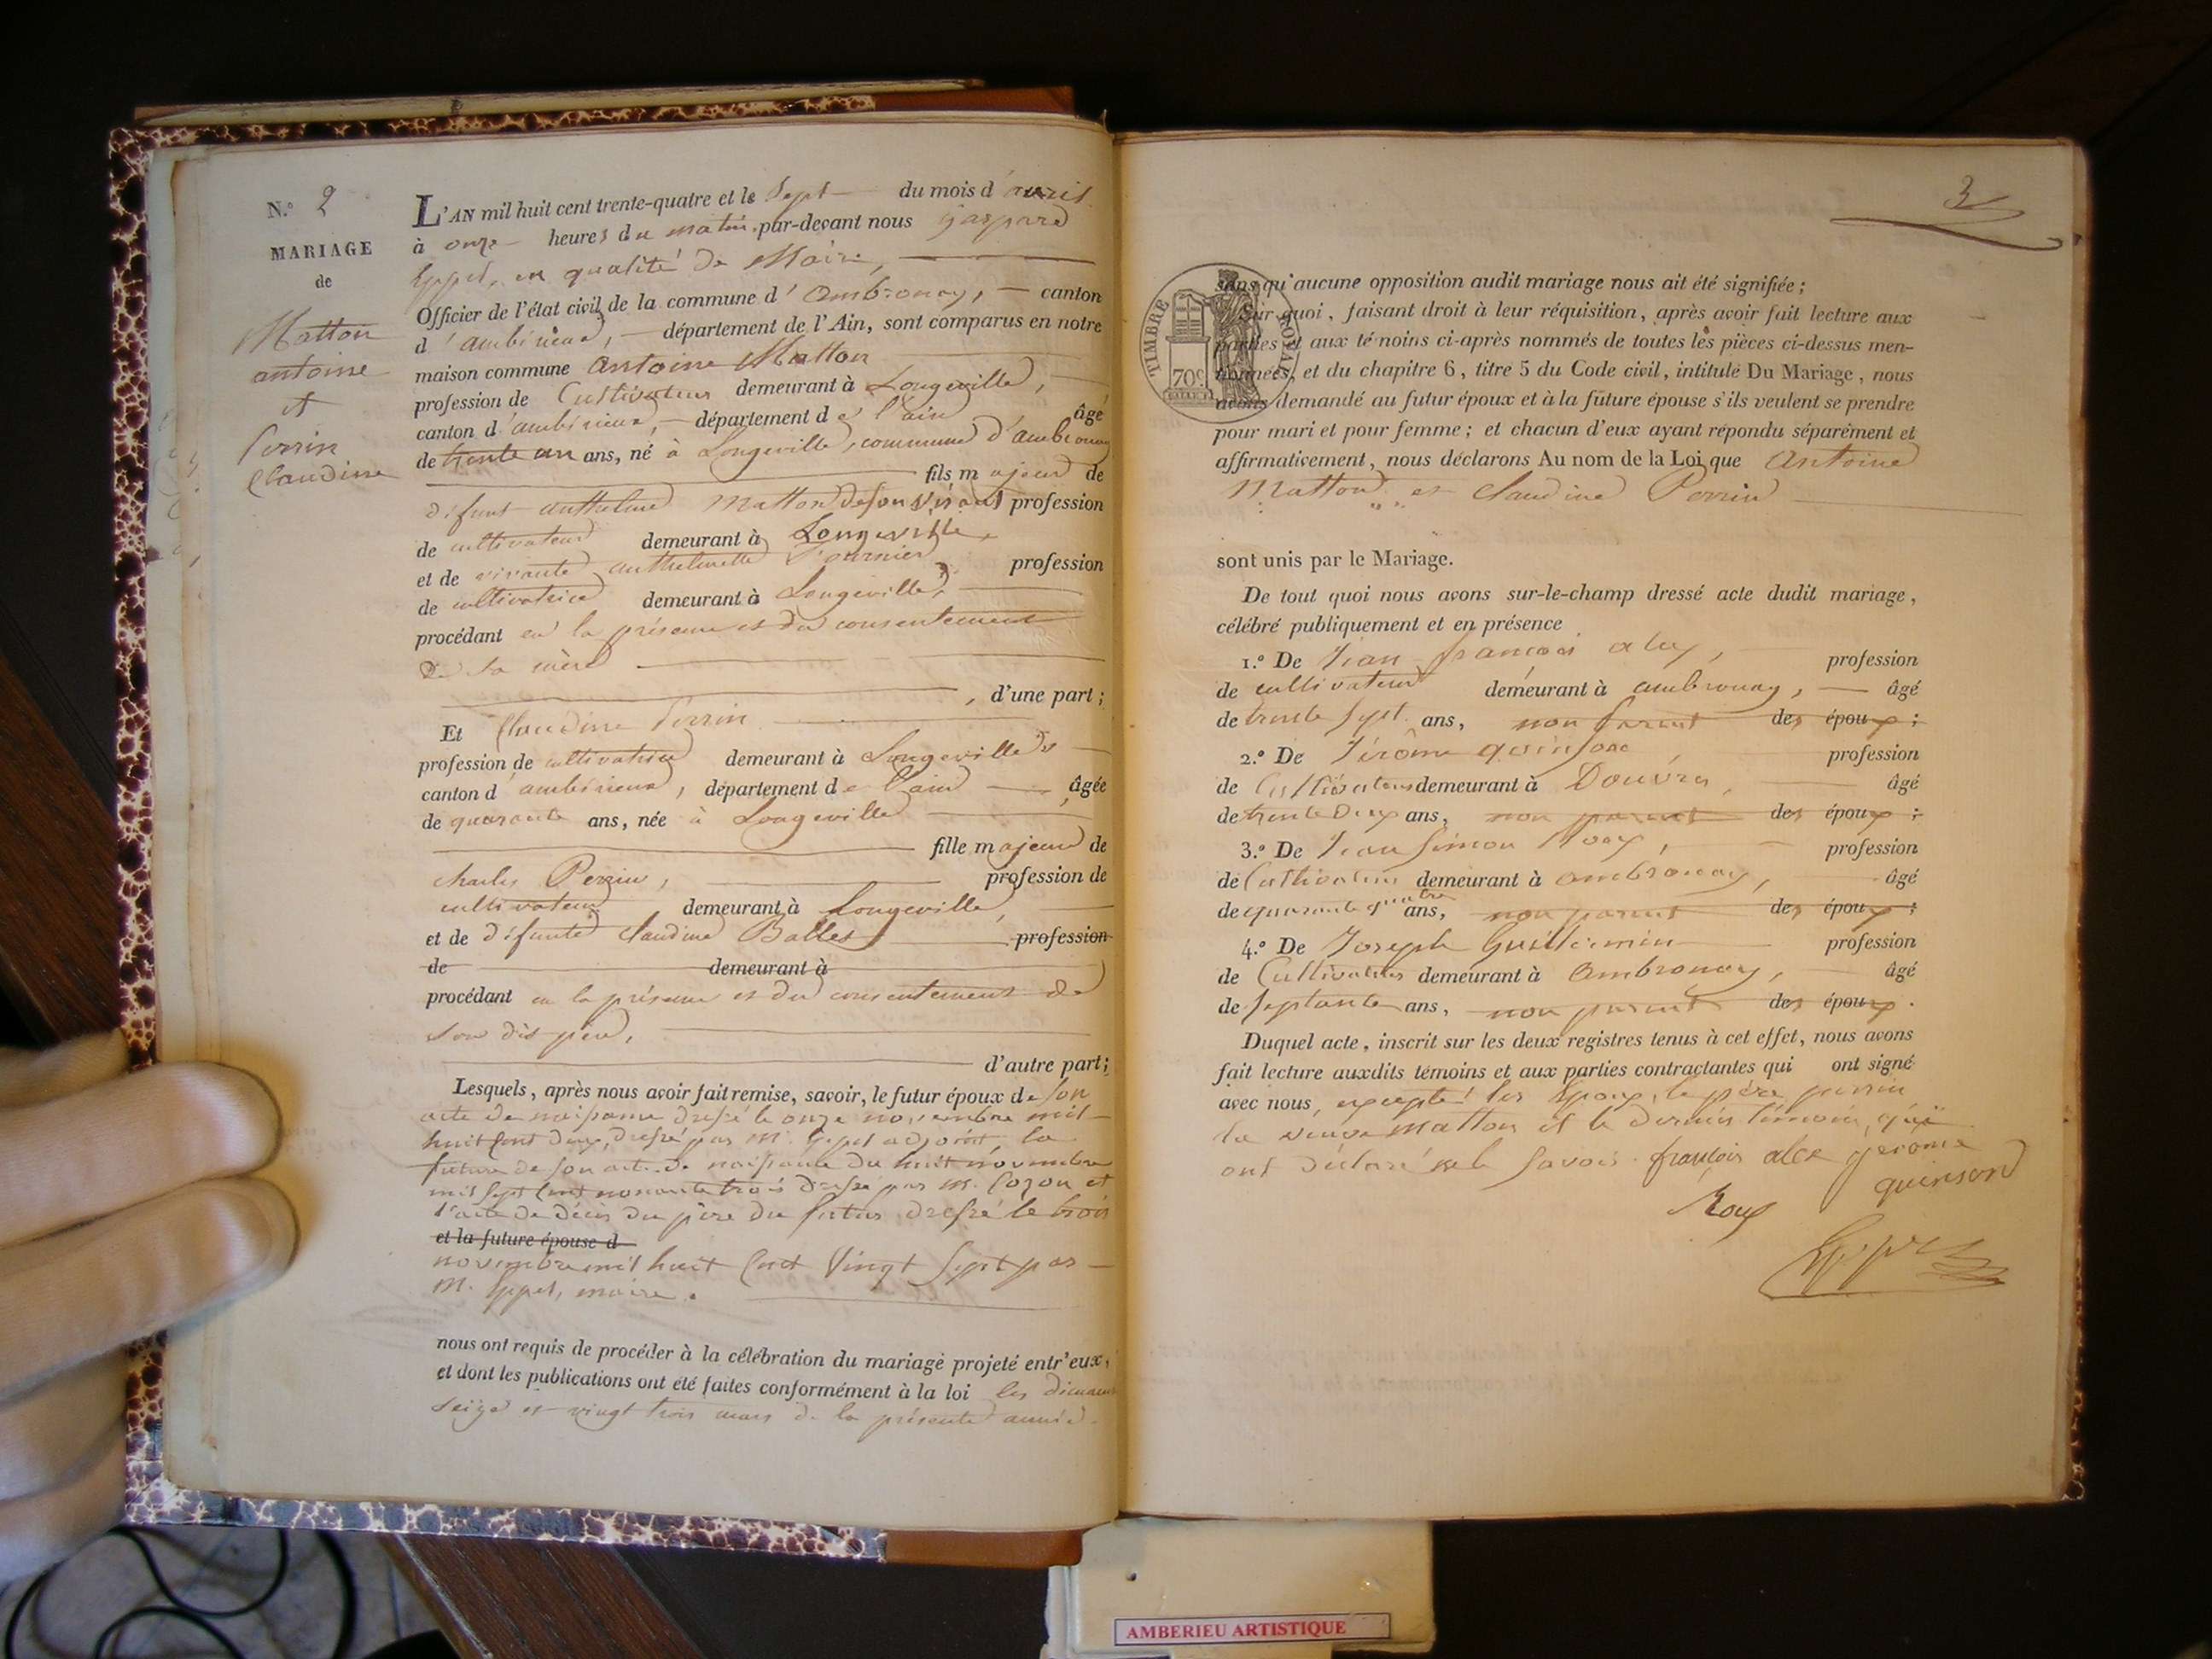 N.° 2
MARIAGE
de
Matton
antoine
et
Perrin
Claudine
L'AN mil huit cent trente-quatre et le Sept du mois d'avril
à onze heures du matin par-devant nous Gaspard
Eppel, en qualité de Maire,
Officier de l'état civil de la commune d'ambronay, canton
d'ambérieux, département de l'Ain, sont comparus en notre
maison commune Antoine Matton
profession de Cultivateur demeurant à Longeville,
canton d'ambérieux, département de l'ain âgé
de trente un ans, né à Longeville, commune d'ambronay
fils majeur de
défunt anthelme Matton de son vivant profession
de cultivateur demeurant à Longeville,
et de vivante anthelmette Fournier profession
de cultivatrice demeurant à Longeville,
procédant en la présence et du consentement
de sa mère
, d'une part ;
Et Claudine Perrin
profession de cultivatrice demeurant à Longeville
canton d'ambérieux, département de l'ain âgée
de quarante ans, née à Longeville
fille majeure de
charles Perrin, profession de
cultivateur demeurant à Longeville,
et de défunte Claudine Ballet profession
de demeurant à
procédant en la présence et du consentement de
son dit père,
d'autre part ;
Lesquels, après nous avoir fait remise, savoir, le futur époux de son
acte de naissance dressé le onze novembre mil
huit cent deux, dressé par M. Eppel adjoint, la
future de son acte de naissance du huit novembre
mil sept cent nonante trois dressé par M. Cozon et
l'acte de décès du père du futur dressé le trois
et la future épouse d
novembre mil huit cent vingt sept par
M. Eppel, maire.
nous ont requis de procéder à la célébration du mariage projeté entr'eux,
et dont les publications ont été faites conformément à la loi les dimanches
seize et vingt trois mars de la présente année.
3
TIMBRE ROYAL
70 c.
sans qu'aucune opposition audit mariage nous ait été signifiée ;
Sur quoi, faisant droit à leur réquisition, après avoir fait lecture aux
parties et aux témoins ci-après nommés de toutes les pièces ci-dessus men-
tionnées, et du chapitre 6, titre 5 du Code civil, intitulé Du Mariage, nous
avons demandé au futur époux et à la future épouse s'ils veulent se prendre
pour mari et pour femme ; et chacun d'eux ayant répondu séparément et
affirmativement, nous déclarons Au nom de la Loi que Antoine
Matton et Claudine Perrin
sont unis par le Mariage.
De tout quoi nous avons sur-le-champ dressé acte dudit mariage,
célébré publiquement et en présence
1.° De Jean françois alex, profession
de cultivateur demeurant à ambronay, âgé
de trente sept ans, non parent des époux ;
2.° De Jérôme quinson profession
de Cultivateur demeurant à Douvres, âgé
de trente Deux ans, non parent des époux ;
3.° De Jean Simon Roux, profession
de Cultivateur demeurant à ambronay, âgé
de quarante quatre ans, non parent des époux ;
4.° De Joseph Guillermin profession
de Cultivateur demeurant à Ambronay, âgé
de Septante ans, non parent des époux.
Duquel acte, inscrit sur les deux registres tenus à cet effet, nous avons
fait lecture auxdits témoins et aux parties contractantes qui ont signé
avec nous, excepté les Epoux, le père perrin
la veuve Matton et le dernier témoin, qui
ont déclaré ne le savoir. françois alex jerome
quinson
Roux
Eppel
AMBERIEU ARTISTIQUE